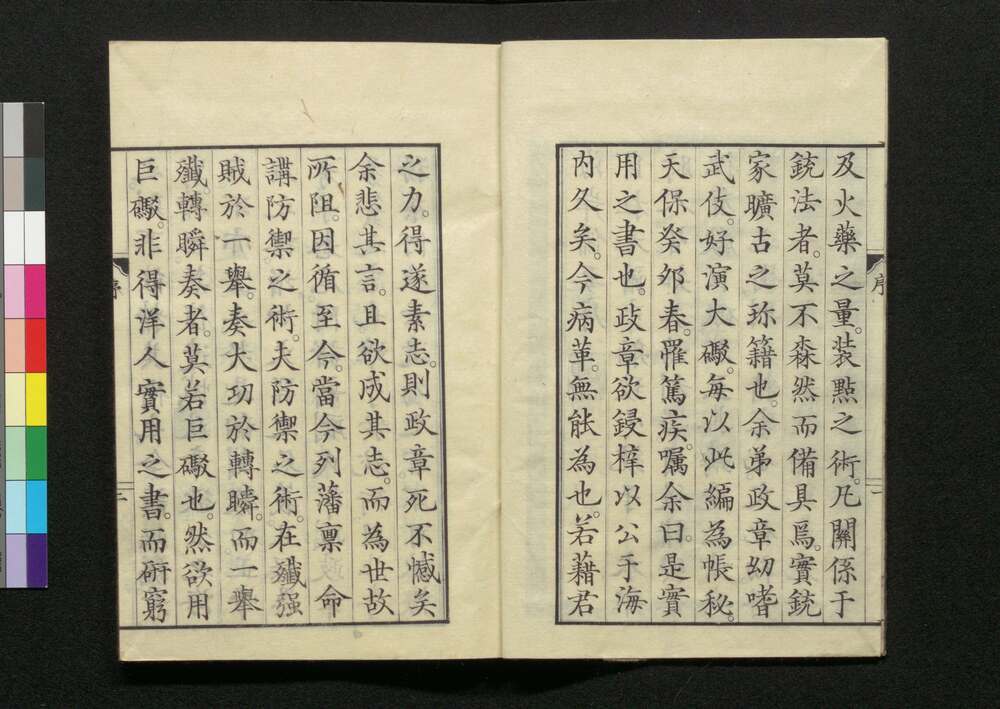 及火藥之量。裝點之術。凡關係于
銃法者。莫不森然而備具焉。實銃
家曠古之珎籍也。余弟政章幼嗜
武伎。好演大礮。每以此編為帳秘。
天保癸夘春。罹篤疾。嘱余曰。是實
用之書也。政章欲鋟梓以公于海
內久矣。今病革。無能為也。若藉君
之力。得遂素志。則政章死不憾矣
余悲其言。且欲成其志。而為世故
所阻。因循至今。當今列藩禀 命
講防禦之術。夫防禦之術。在殱强
賊於一舉。奏大功於轉瞬。而一舉
殱。轉瞬奏者。莫若巨礮也。然欲用
巨礮。非得洋人實用之書。而研窮
序
二
序
二